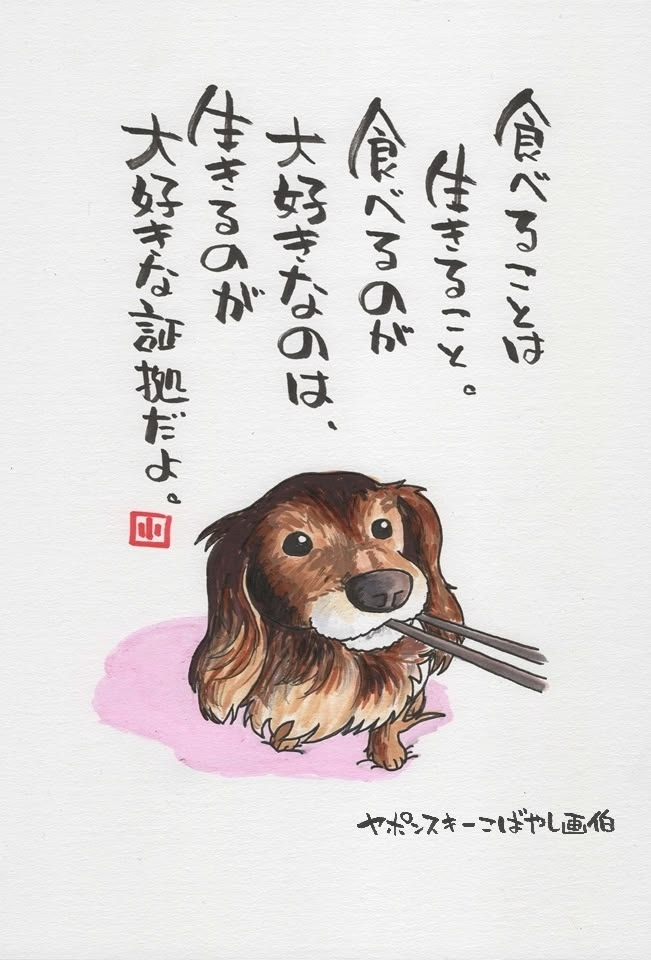 食べることは
生きること。
食べるのが
大好きなのは、
生きるのが
大好きな証拠だよ。
小
ヤポンスキーこばやし画伯